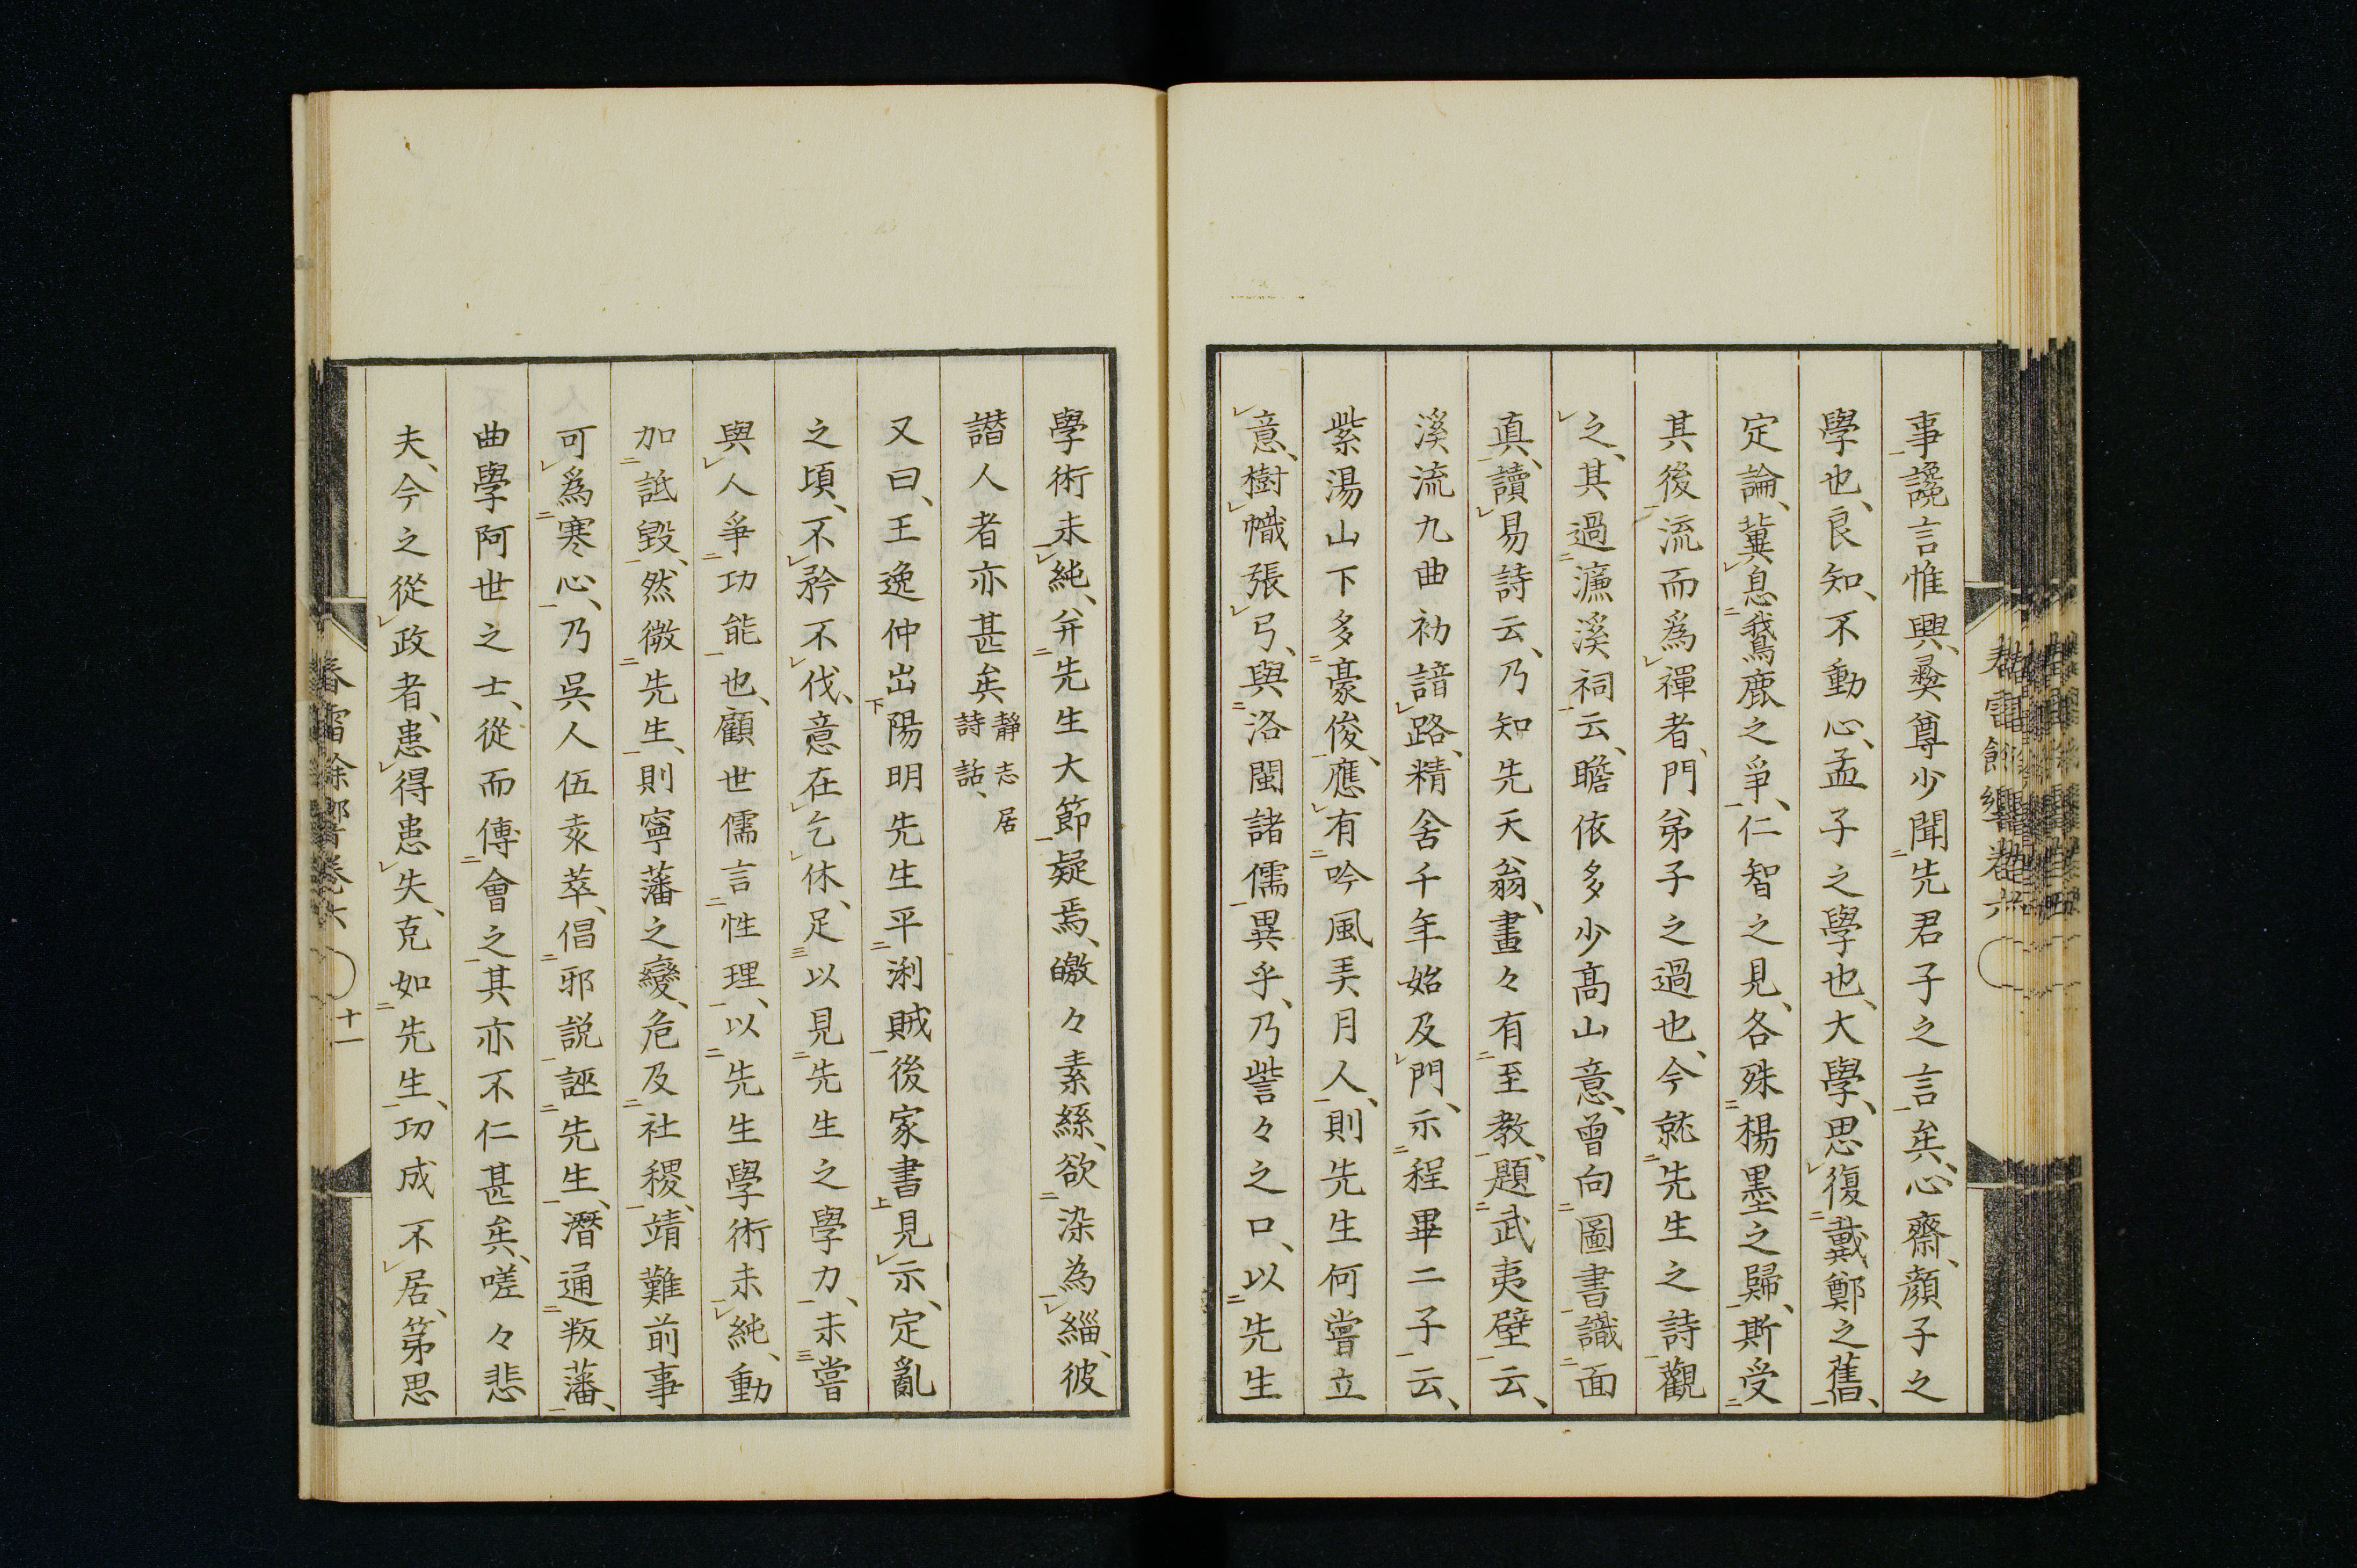 事讒言惟興、彛尊少聞先君子之言矣、心齋、顏子之
學也、良知、不動心、孟子之學也、大學、思復戴鄭之舊、
定論、冀息鵞鹿之爭、仁智之見、各殊楊墨之歸、斯受
其後流而爲禪者、門弟子之過也、今就先生之詩觀
之、其過濂溪祠云、瞻依多少髙山意、曾向圖書識面
真、讀易詩云、乃知先天翁、畫々有至教、題武夷壁云、
溪流九曲初諳路、精舍千年始及門、示程畢二子云、
紫湯山下多豪俊、應有吟風弄月人、則先生何嘗立
意、樹幟張弓、與洛閩諸儒異乎、乃訾々之口、以先生
學術未純、弁先生大節疑焉、皦々素絲、欲染為緇、彼
譖人者亦甚矣 靜志居詩話、
又曰、王逸仲出陽明先生平浰賊後家書見示、定亂
之頃、不矜不伐、意在乞休、足以見先生之學力、未嘗
與人爭功能也、顧世儒言性理、以先生學術未純、動
加詆毀、然微先生、則寧藩之變、危及社稷、靖難前事
可爲寒心、乃吳人伍袁萃、倡邪説誣先生、潛通叛藩、
曲學阿世之士、從而傅會之其亦不仁甚矣、嗟々悲
夫、今之從政者、患得患失、克如先生、功成不居、第思
十一